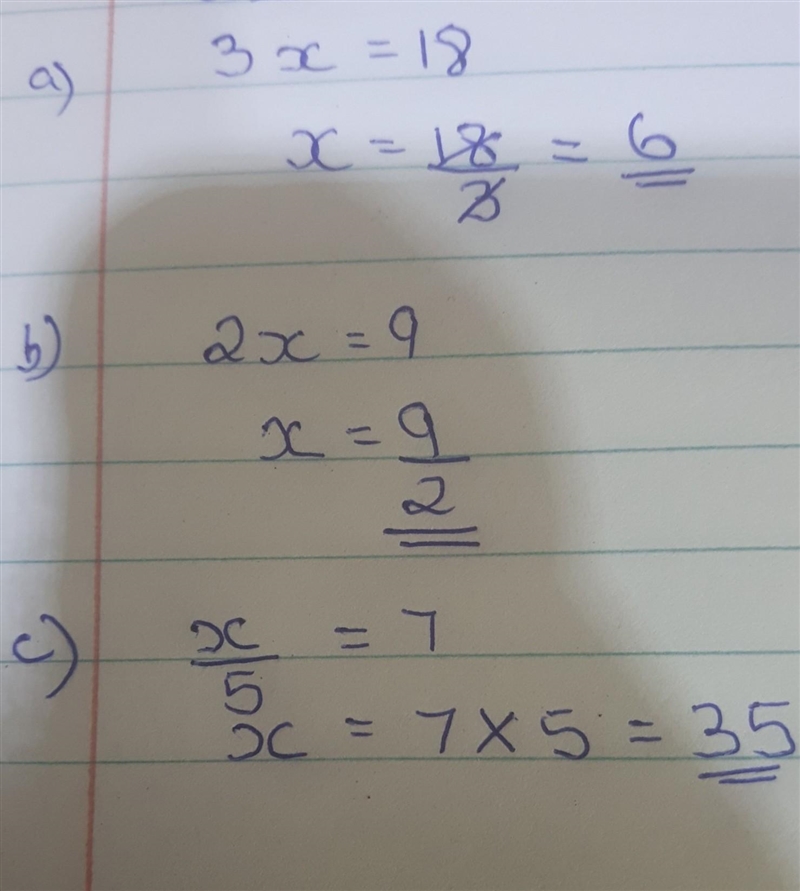 a) 3x = 18
x = 18/3 = 6
b) 2x = 9
x = 9/2
c) x/5 = 7
x = 7 × 5 = 35